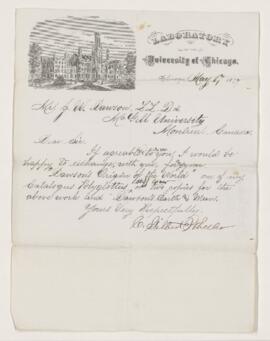 LABORATORY
University of Chicago.
Chicago, May 6, 187
J. W. Dawson, LL.D.
McGill University
Montreal, Canada
Dear Sir
If agreeable to you, I would be
happy to exchange with you, for your
"Dawson's Origin of the World" one of my
Catalogus Polyglottus, or two copies for the
above work and Dawson's Earth & Man.
Yours Very Respectfully
C. Gilbert Wheeler